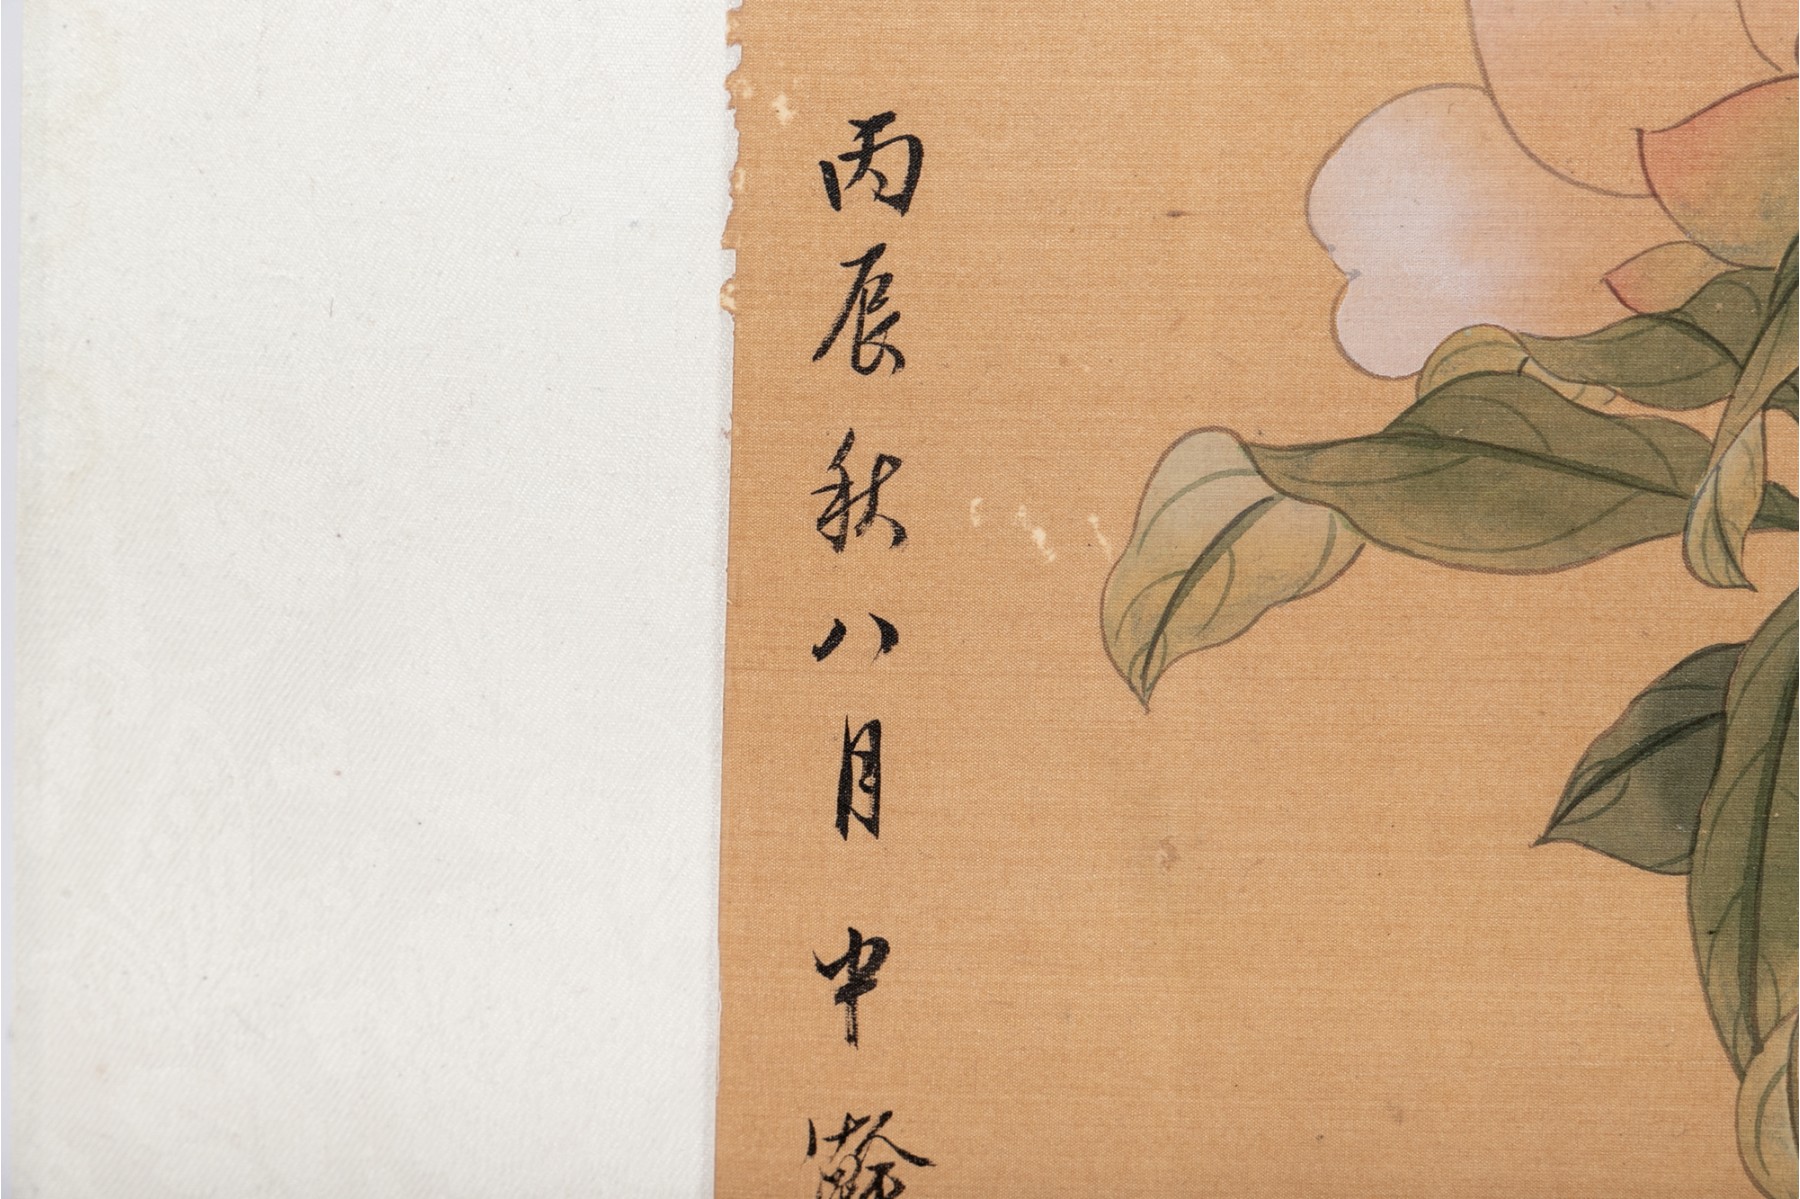 丙辰秋八月中澣